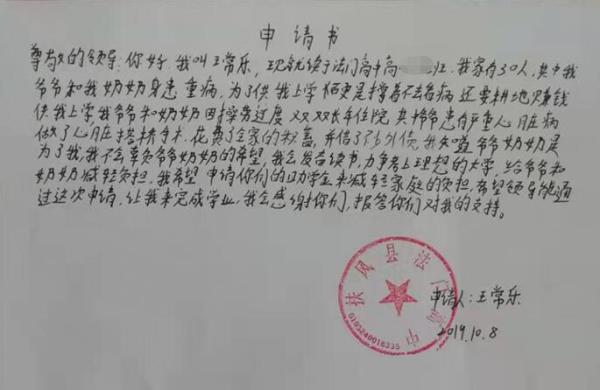 申请书
尊敬的领导：你好，我叫王常乐，现就读于法门高中高 班。我家有3口人，其中我
爷爷和我奶奶身患重病。为了供我上学 硬是撑着不去看病 还要耕地赚钱
供我上学 我爷爷和奶奶因操劳过度 双双 住院 其中爷爷患有严重心脏病
做了心脏搭桥手术。花费了全家的积蓄，并借了外债。我知道爷爷奶奶是
为了我，我不会辜负爷爷奶奶的希望，我会发奋读书，力争考上理想的大学，给爷爷和
奶奶减轻负担。我希望申请你们的助学金来减轻家庭的负担。希望领导能通
过这次申请，让我来完成学业，我会感谢你们，报答你们对我的支持。
扶风县法门高中
6103240016335
申请人：王常乐
2019.10.8